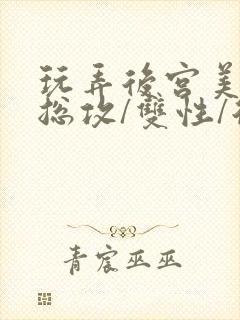 玩弄後宮美
总攻/雙性/
青宸巫巫